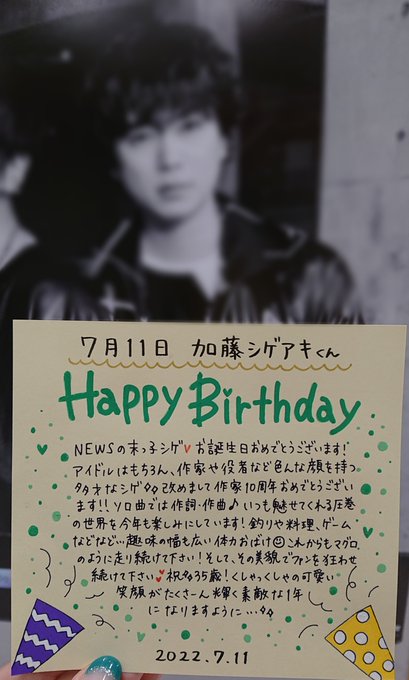 7月11日 加藤シゲアキくん
Happy Birthday
NEWSの末っ子シゲ♥お誕生日おめでとうございます!
アイドルはもちろん、作家や役者など色んな顔を持つ
多才なシゲ✧✧改めまして作家10周年おめでとうござい
ます!!ソロ曲では作詞・作曲♪いつも魅せてくれる圧巻
の世界を今年も楽しみにしています!釣りや料理、ゲーム
などなど…趣味の幅も広い体力おばけ☺これからもマグロ
のように走り続けて下さい!そして、その美貌でファンを狂わせ
続けて下さい♥祝♂35歳!くしゃっくしゃの可愛い
笑顔がたくさーん輝く素敵な1年
になりますように…✧✧
2022.7.11